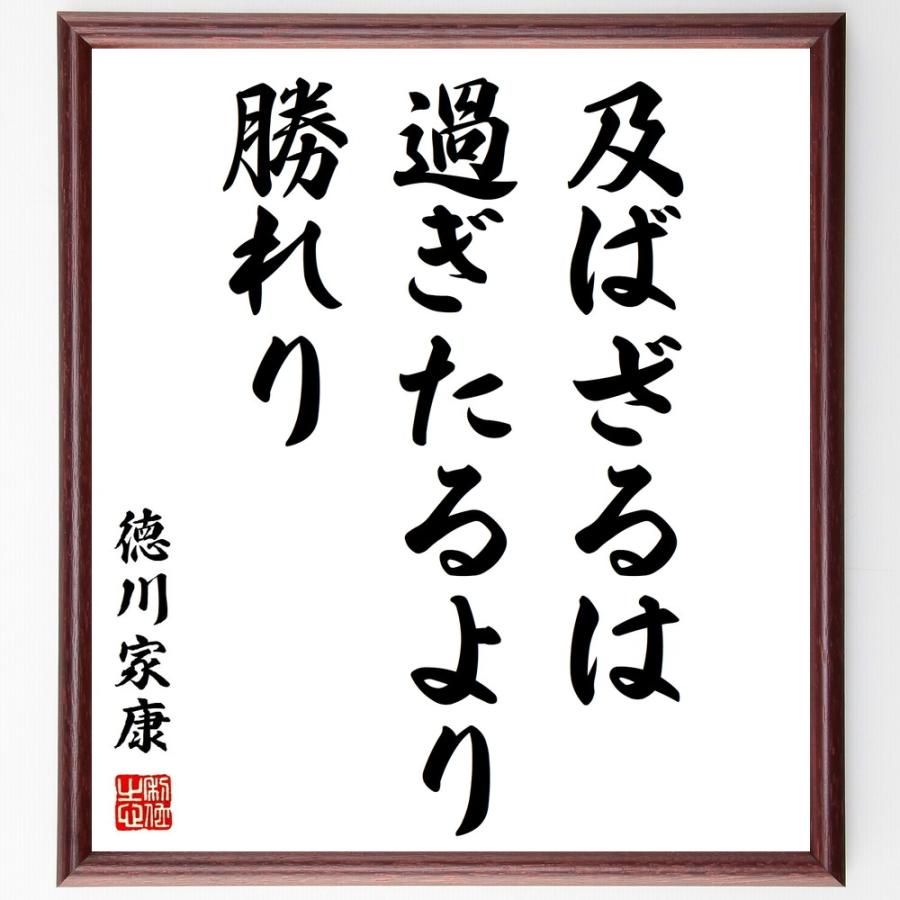 及ばざるは
過ぎたるより
勝れり
徳川家康